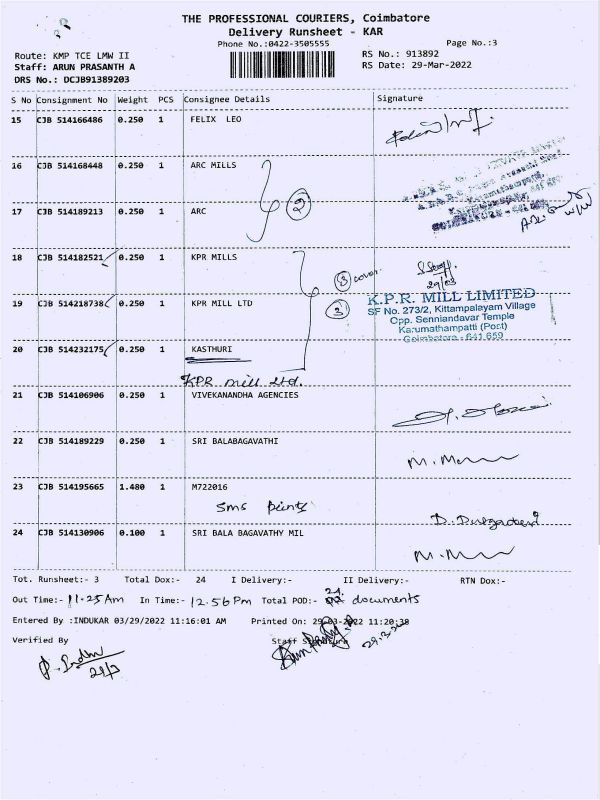 THE PROFESSIONAL COURIERS, Coimbatore
Delivery Runsheet - KAR
Phone No.:0422-3505555
Page No.:3
Route: KMP TCE LMW II
RS No.: 913892
Staff: ARUN PRASANTH A
RS Date: 29-Mar-2022
DRS No.: DCJB91389203
S No Consignment No Weight PCS Consignee Details Signature
15 CJB 514166486 0.250 1 FELIX LEO
16 CJB 514168448 0.250 1 ARC MILLS
2
17 CJB 514189213 0.250 1 ARC
18 CJB 514182521 0.250 1 KPR MILLS
3 cover
29/03
19 CJB 514218738 0.250 1 KPR MILL LTD
K.P.R. MILL LIMITED
SF No. 273/2, Kittampalayam Village
Opp. Senniandavar Temple
Karumathampatti (Post)
Coimbatore - 641 659
20 CJB 514232175 0.250 1 KASTHURI
KPR mill Ltd.
21 CJB 514106906 0.250 1 VIVEKANANDHA AGENCIES
22 CJB 514189229 0.250 1 SRI BALABAGAVATHI
23 CJB 514195665 1.480 1 M722016
Sms Points
24 CJB 514130906 0.100 1 SRI BALA BAGAVATHY MIL
Tot. Runsheet:- 3 Total Dox:- 24 I Delivery:- II Delivery:- RTN Dox:-
Out Time:- 11.25 Am In Time:- 12.56 Pm Total POD:- 24 documents
Entered By :INDUKAR 03/29/2022 11:16:01 AM Printed On: 29-03-2022 11:20:38
Verified By Staff Signature